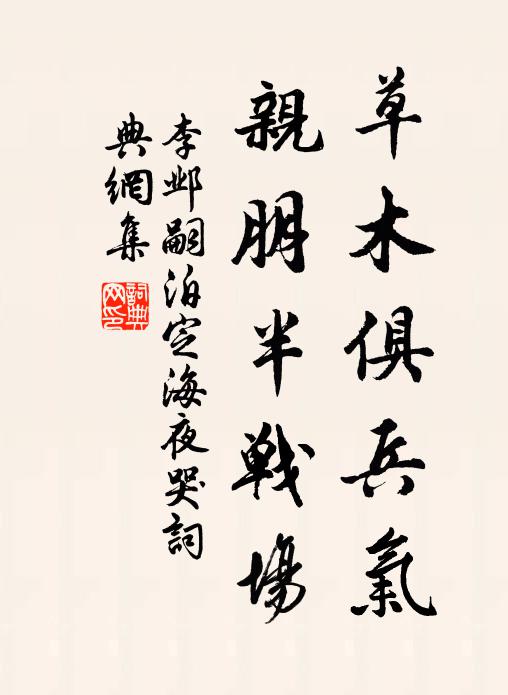 草木俱兵氣
親朋半戦場
李邺嗣泊定海夜哭詞
典網集
詞典网印